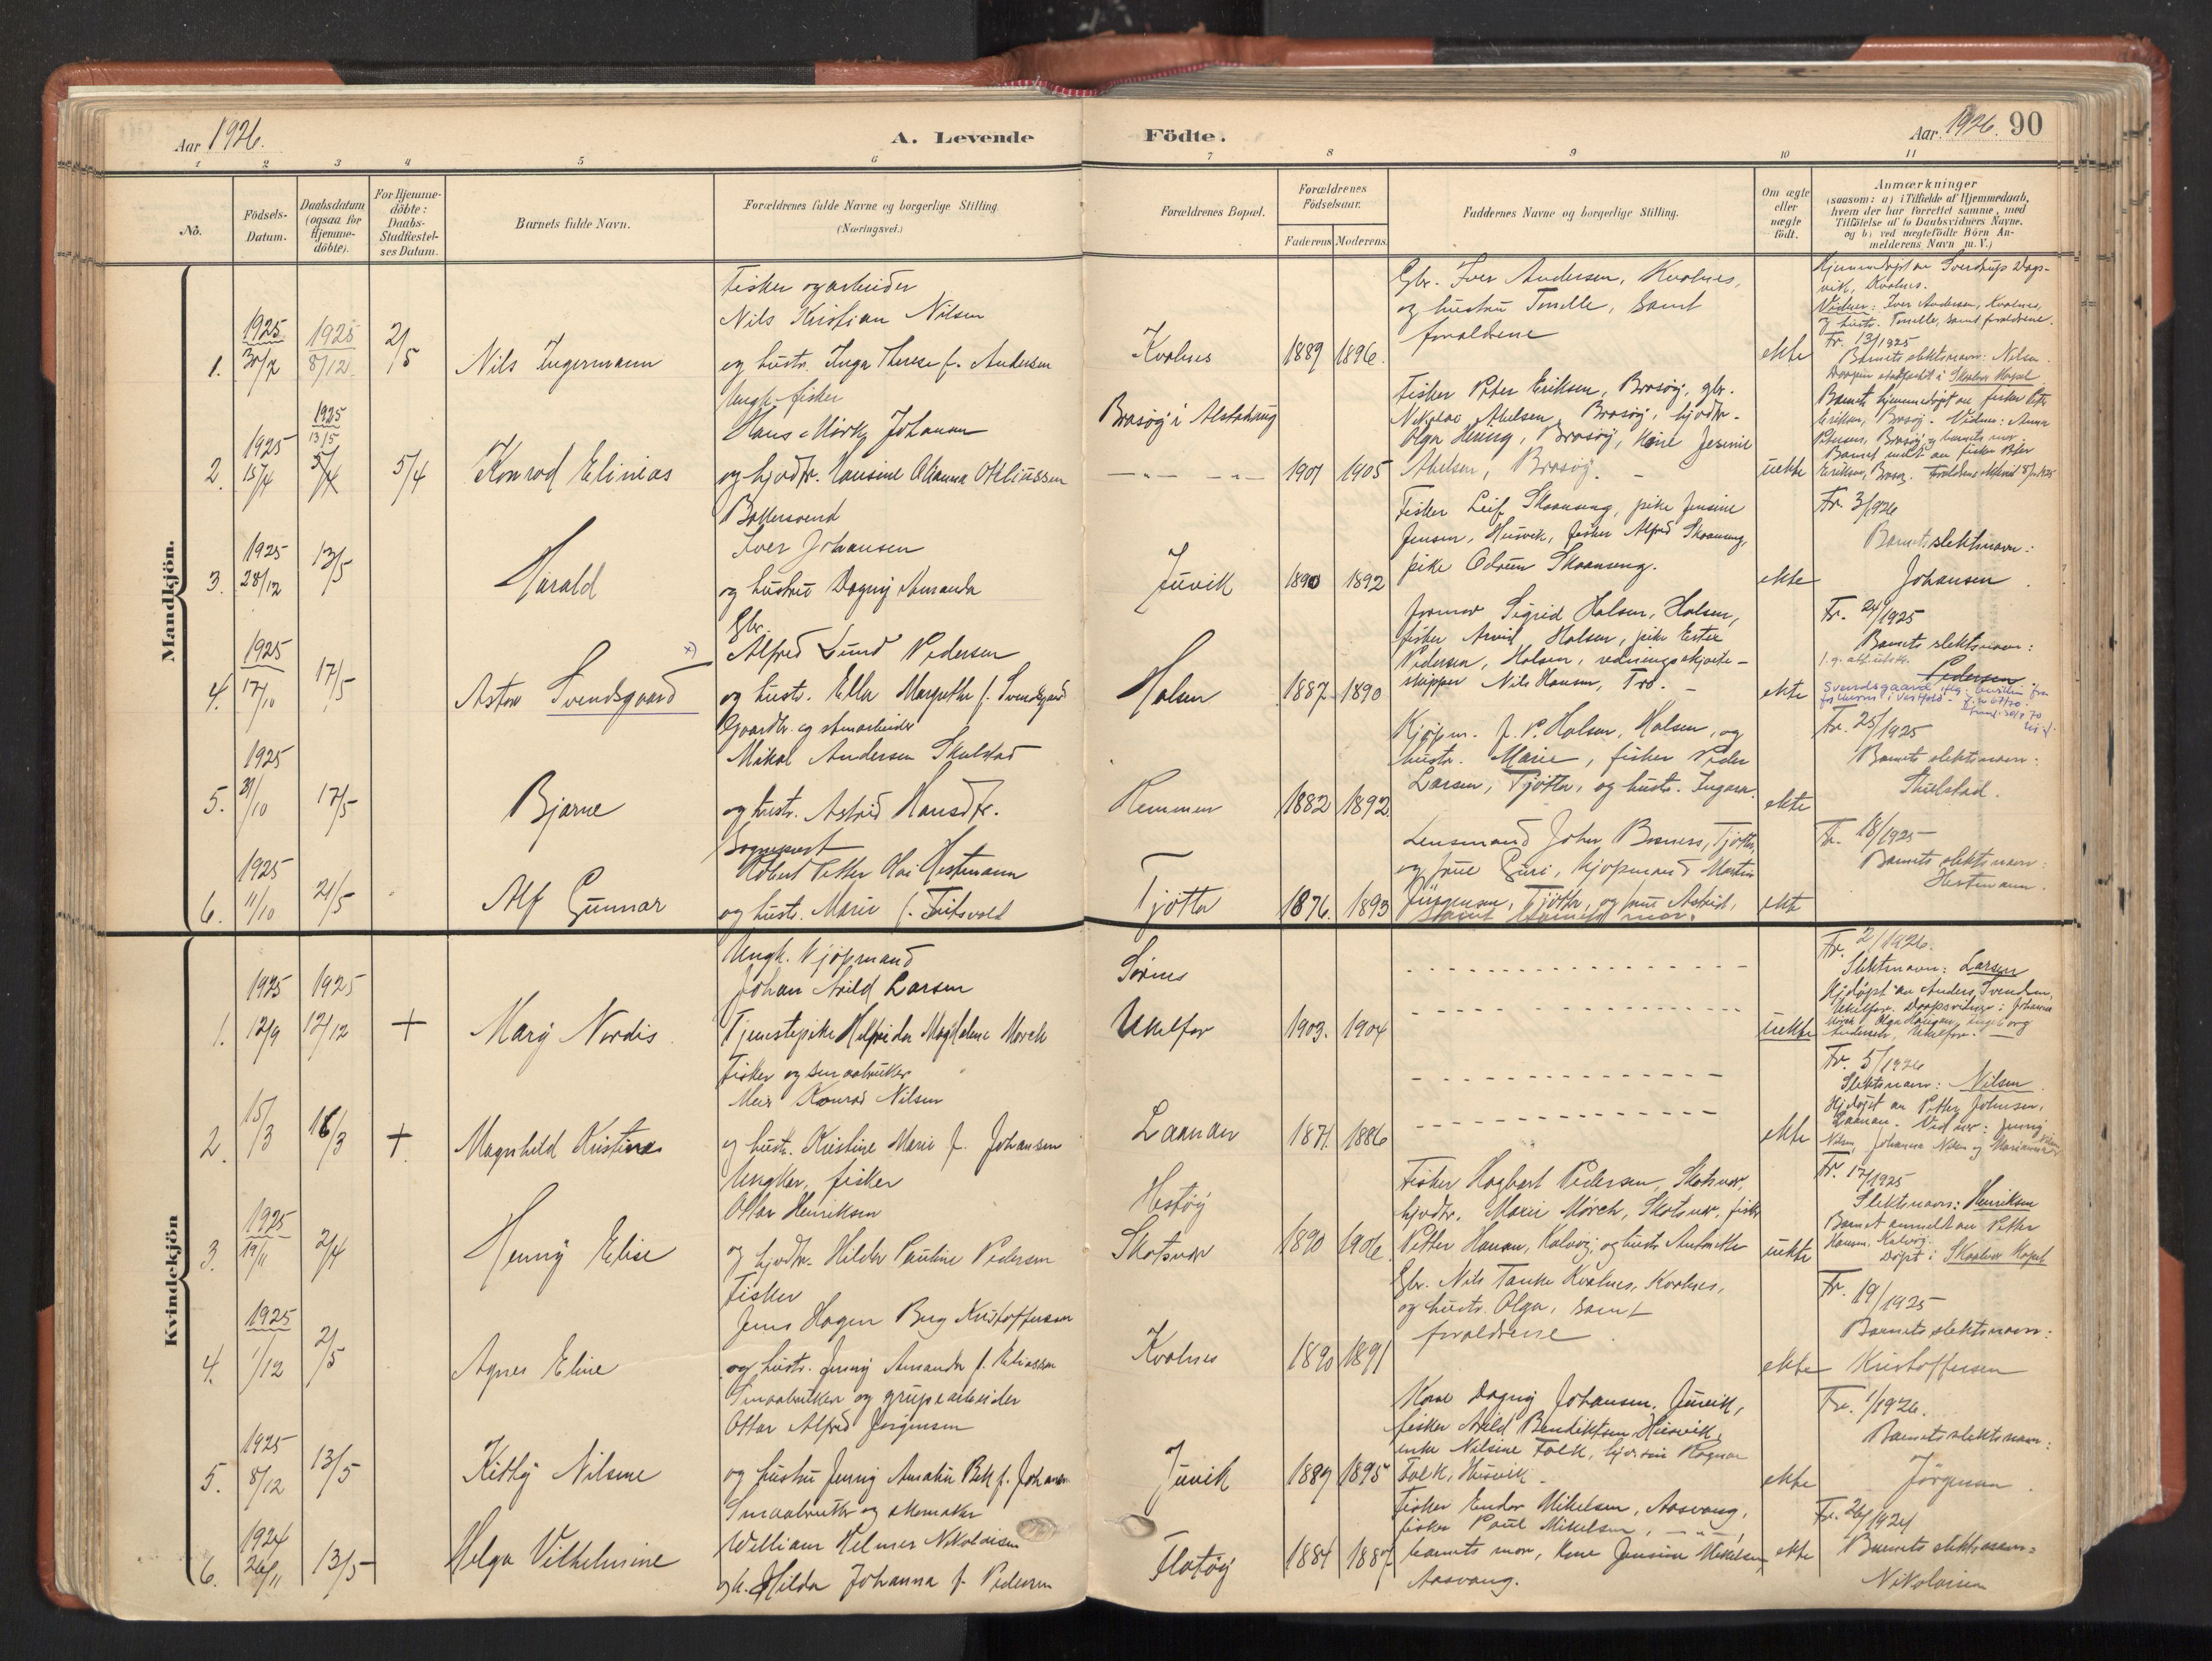 Aar 1926.
A. Levende
Födte.
Aar 1926. 90
1 2 3 4 5 6 7 8 9 10 11
No.
Födsels-
Datum.
Daabsdatum
(ogsaa for
Hjemme-
döbte).
For Hjemme-
döbte:
Daabs-
Stadfæstel-
ses Datum.
Barnets fulde Navn.
Forældrenes fulde Navne og borgerlige Stilling
(Næringsvei.)
Forældrenes Bopæl.
Forældrenes
Födselsaar.
Faderens Moderens
Faddernes Navne og borgerlige Stilling.
Om ægte
eller
uægte
födt.
Anmærkninger
(saasom: a) i Tilfælde af Hjemmedaab,
hvem der har forrettet samme, med
Tilföielse af to Daabsvidners Navne.
og b) ved uægtefödte Börn An-
melderens Navn m. V.)
Mandkjön.
1. 1925 30/7
1925 8/12
2/5
Nils Ingermann
Fisker og arbeider
Nils Kristian Nilsen
og hustr. Inga Therese f. Andersen
Kvalnes
1889 1896.
Gbr. Iver Andersen, Kvalnes,
og hustru Tomelle, samt
foraldrene
ekte
Hjemmedøpt av Sverdrup Dags-
vik, Kvalnes.
Vidner: Iver Andersen, Kvalnes,
og hustr. Tomelle, samt foraldrene.
Fr. 13/1925
Barnets slektsnavn: Nilsen.
Daapen stadfestet i Skaalvær Kapel
2. 1925 15/4
1925 13/5
5/4
5/4
Konrad Elinias
Ungk. fisker
Hans Mørk Johansen
og hjvdtr. Hansine Okanna Otiliussen
Brasøy i Alstahaug
1907 1905
Fisker Peter Eriksen, Brasøy, gbr.
Nikolae Abelsen, Brasøy, hjvdtr.
Olga Hering, Brasøy, Kone Jesine
Abelsen, Brasøy. -
uekte
Barnet hjemmedøpt av fisker Peter
Eriksen, Brasøy. Vidner: Anna
Petersen, Brasøy og barnets mor.
Barnet meldt av fisker Peter
Eriksen, Brasøy.
3. 1925 28/12
13/5
Harald
Bakkersvend
Iver Johansen
og hustru Dagny Amanda
Juvik
1890 1892
Fisker Leif Skaanseng, pike Jensine
Jensen, Husvik, fisker Alfred Skaanseng,
pike Odrun Skaanseng.
ekte
Fr. 3/1926
Barnets slektsnavn:
Johansen.
4. 1925 17/10
17/5
Aston Svendsgaard
x)
Gbr.
Alfred Lund Pedersen
og hustr. Ella Margrethe f. Svendsgaard
Halsen
1887 1890
Farmor Sigrid Halsen, Halsen,
fisker Arvid Halsen, pike Ester
Pedersen, Halsen, redningsskjøite-
skipper Nils Hansen, Tro. -
ekte
Fr. 24/1925
Barnets slektsnavn:
Pedersen
Svendsgaard
5. 1925 29/10
17/5
Bjarne
Gaardbr. og stenarbeider
Mikal Andersen Skulstad
og hustr. Astrid Hansdtr.
Remmen
1882 1892.
Kjøpm. J. P. Halsen, Halsen, og
hustr. Marie, fisker Peder
Larsen, Tjøtta, og hustr. Ingara.
ekte
Fr. 25/1925
Barnets slektsnavn:
Skulstad.
6. 1925 11/10
21/5
Alf Gunnar
Sogneprest
Robert Petter Hoi Hestmann
og hustr. Marie f. Fritsvold
Tjøtta
1876. 1893
Lensmand Johan Brsness, Tjøtta,
og frue Guri, kjøpmand Martin
Jürgensen, Tjøtta, og frue Astrid,
samt barnets mor.
ekte
Fr. 18/1925
Barnets slektsnavn:
Hestmann.
Kvindekjön
1. 1925 12/9
1925 12/12
+
Mary Nordis
Ungk. kjøpmand
Johan Arild Larsen
Tjenestepike Helfrida Magdalena Mørch
Sørnes
Ukelfor
1903. 1904
uekte
Fr. 2/1926.
Slektsnavn: Larsen
Hjdøpt av Anders Svendsen,
Ukelfor. Daapsvidner: Johanna
Mørch, Olga Haugan, Ingeborg
Andersen, Ukelfor. -
2. 15/3
16/3
+
Magnhild Kristine
Fisker og smaabruker
Meir Konrad Nilsen
og hustr. Kristine Marie f. Johansen
Laanan
1874. 1886
ekte
Fr. 5/1926
Slektsnavn: Nilsen.
Hjdøpt av Petter Johnsen,
Laanan. Vidner: Jenny
Nilsen, Johanna Nilsen og Marianna
3. 1925 19/11
2/4
Henny Elise
Ungkar, fisker
Ottar Henriksen
og hjvdtr. Hilda Pauline Pedersen
Hestøy
Skotsvær
1890 1906.
Fisker Hagbart Pedersen, Skotsvær,
hjvdtr. Marie Mørch, Skotsvær, fisker
Petter Hansen, Kalvøy, og hustr. Antonette
uekte
Fr. 17/1925
Slektsnavn: Henriksen
Barnet anmeldt av Petter
Hansen, Kalvøy.
Døpt i Skaalvær Kapel
4. 1925 1/12
2/5
Agnes Eline
Fisker
Jens Hagen Berg Kristoffersen
og hustr. Jenny Amanda f. Eliassen
Kvalnes
1890 1891
Gbr. Nils Tanke Kvalnes, Kvalnes,
og hustr. Olga, samt
foraldrene
ekte
Fr. 19/1925
Barnets slektsnavn:
Kristoffersen
5. 1925 8/12
13/5
Kitty Nilsine
Smaabruker og grupearbeider
Ottar Alfred Jørgensen
og hustru Jenny Amalie Bek f. Johansen
Juvik
1889 1895
Kone Dagny Johansen, Juvik,
fisker Arild Bendiktsen, Husvik,
enke Nilsine Falk, hjvsøn Ragnar
Falk, Husvik -
ekte
Fr. 1/1926.
Barnets slektsnavn:
Jørgensen.
6. 1924 26/11
13/5
Helga Vilhelmine
Smaabruker og skomaker
William Helmer Nikolaisen
og h. Hilda Johanna f. Pedersen
Flatøy
1884 1887
Fisker Endor Mikelsen, Aasvang,
fisker Paul Mikelsen, -"-,
barnets mor, kone Jensine Mikelsen,
Aasvang.
ekte
Fr. 26/1924
Barnets slektsnavn:
Nikolaisen